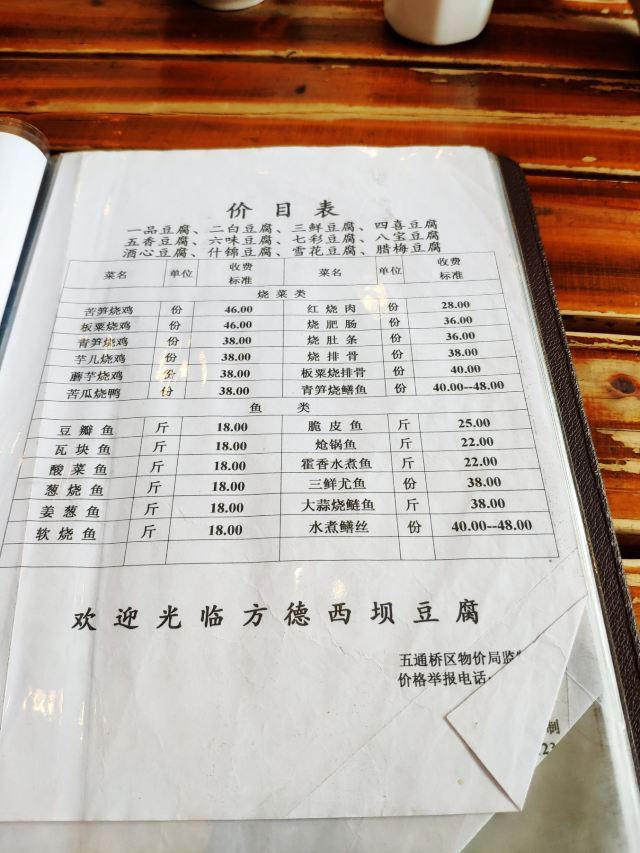 价目表
一品豆腐、二白豆腐、三鲜豆腐、四喜豆腐
五香豆腐、六味豆腐、七彩豆腐、八宝豆腐
酒心豆腐、什锦豆腐、雪花豆腐、腊梅豆腐
菜名 单位 收费标准 菜名 单位 收费标准
烧菜类
苦笋烧鸡 份 46.00 红烧肉 份 28.00
板粟烧鸡 份 46.00 烧肥肠 份 36.00
青笋烧鸡 份 38.00 烧肚条 份 36.00
芋儿烧鸡 份 38.00 烧排骨 份 38.00
蘑芋烧鸡 份 38.00 板粟烧排骨 份 40.00
苦瓜烧鸭 份 38.00 青笋烧鳝鱼 份 40.00--48.00
鱼类
豆瓣鱼 斤 18.00 脆皮鱼 斤 25.00
瓦块鱼 斤 18.00 炝锅鱼 斤 22.00
酸菜鱼 斤 18.00 霍香水煮鱼 斤 22.00
葱烧鱼 斤 18.00 三鲜尤鱼 份 38.00
姜葱鱼 斤 18.00 大蒜烧鲢鱼 斤 38.00
软烧鱼 斤 18.00 水煮鳝丝 份 40.00--48.00
欢迎光临方德西坝豆腐
五通桥区物价局监
价格举报电话:
制